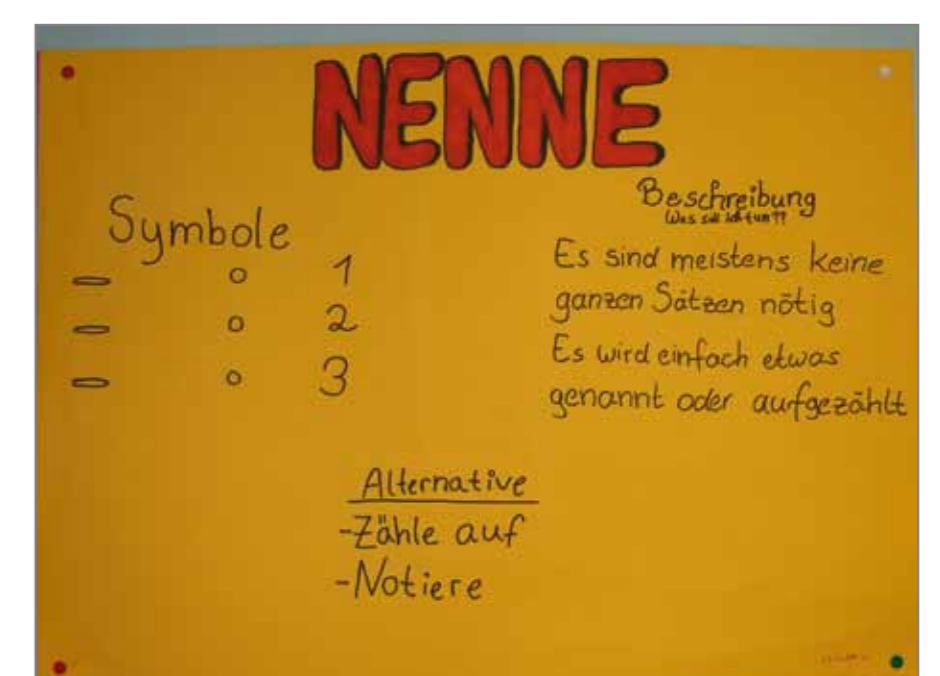 NENNE
Symbole
- o 1
- o 2
- o 3
Beschreibung
Was soll ich tun??
Es sind meistens keine
ganzen Sätzen nötig
Es wird einfach etwas
genannt oder aufgezählt
Alternative
-Zähle auf
-Notiere